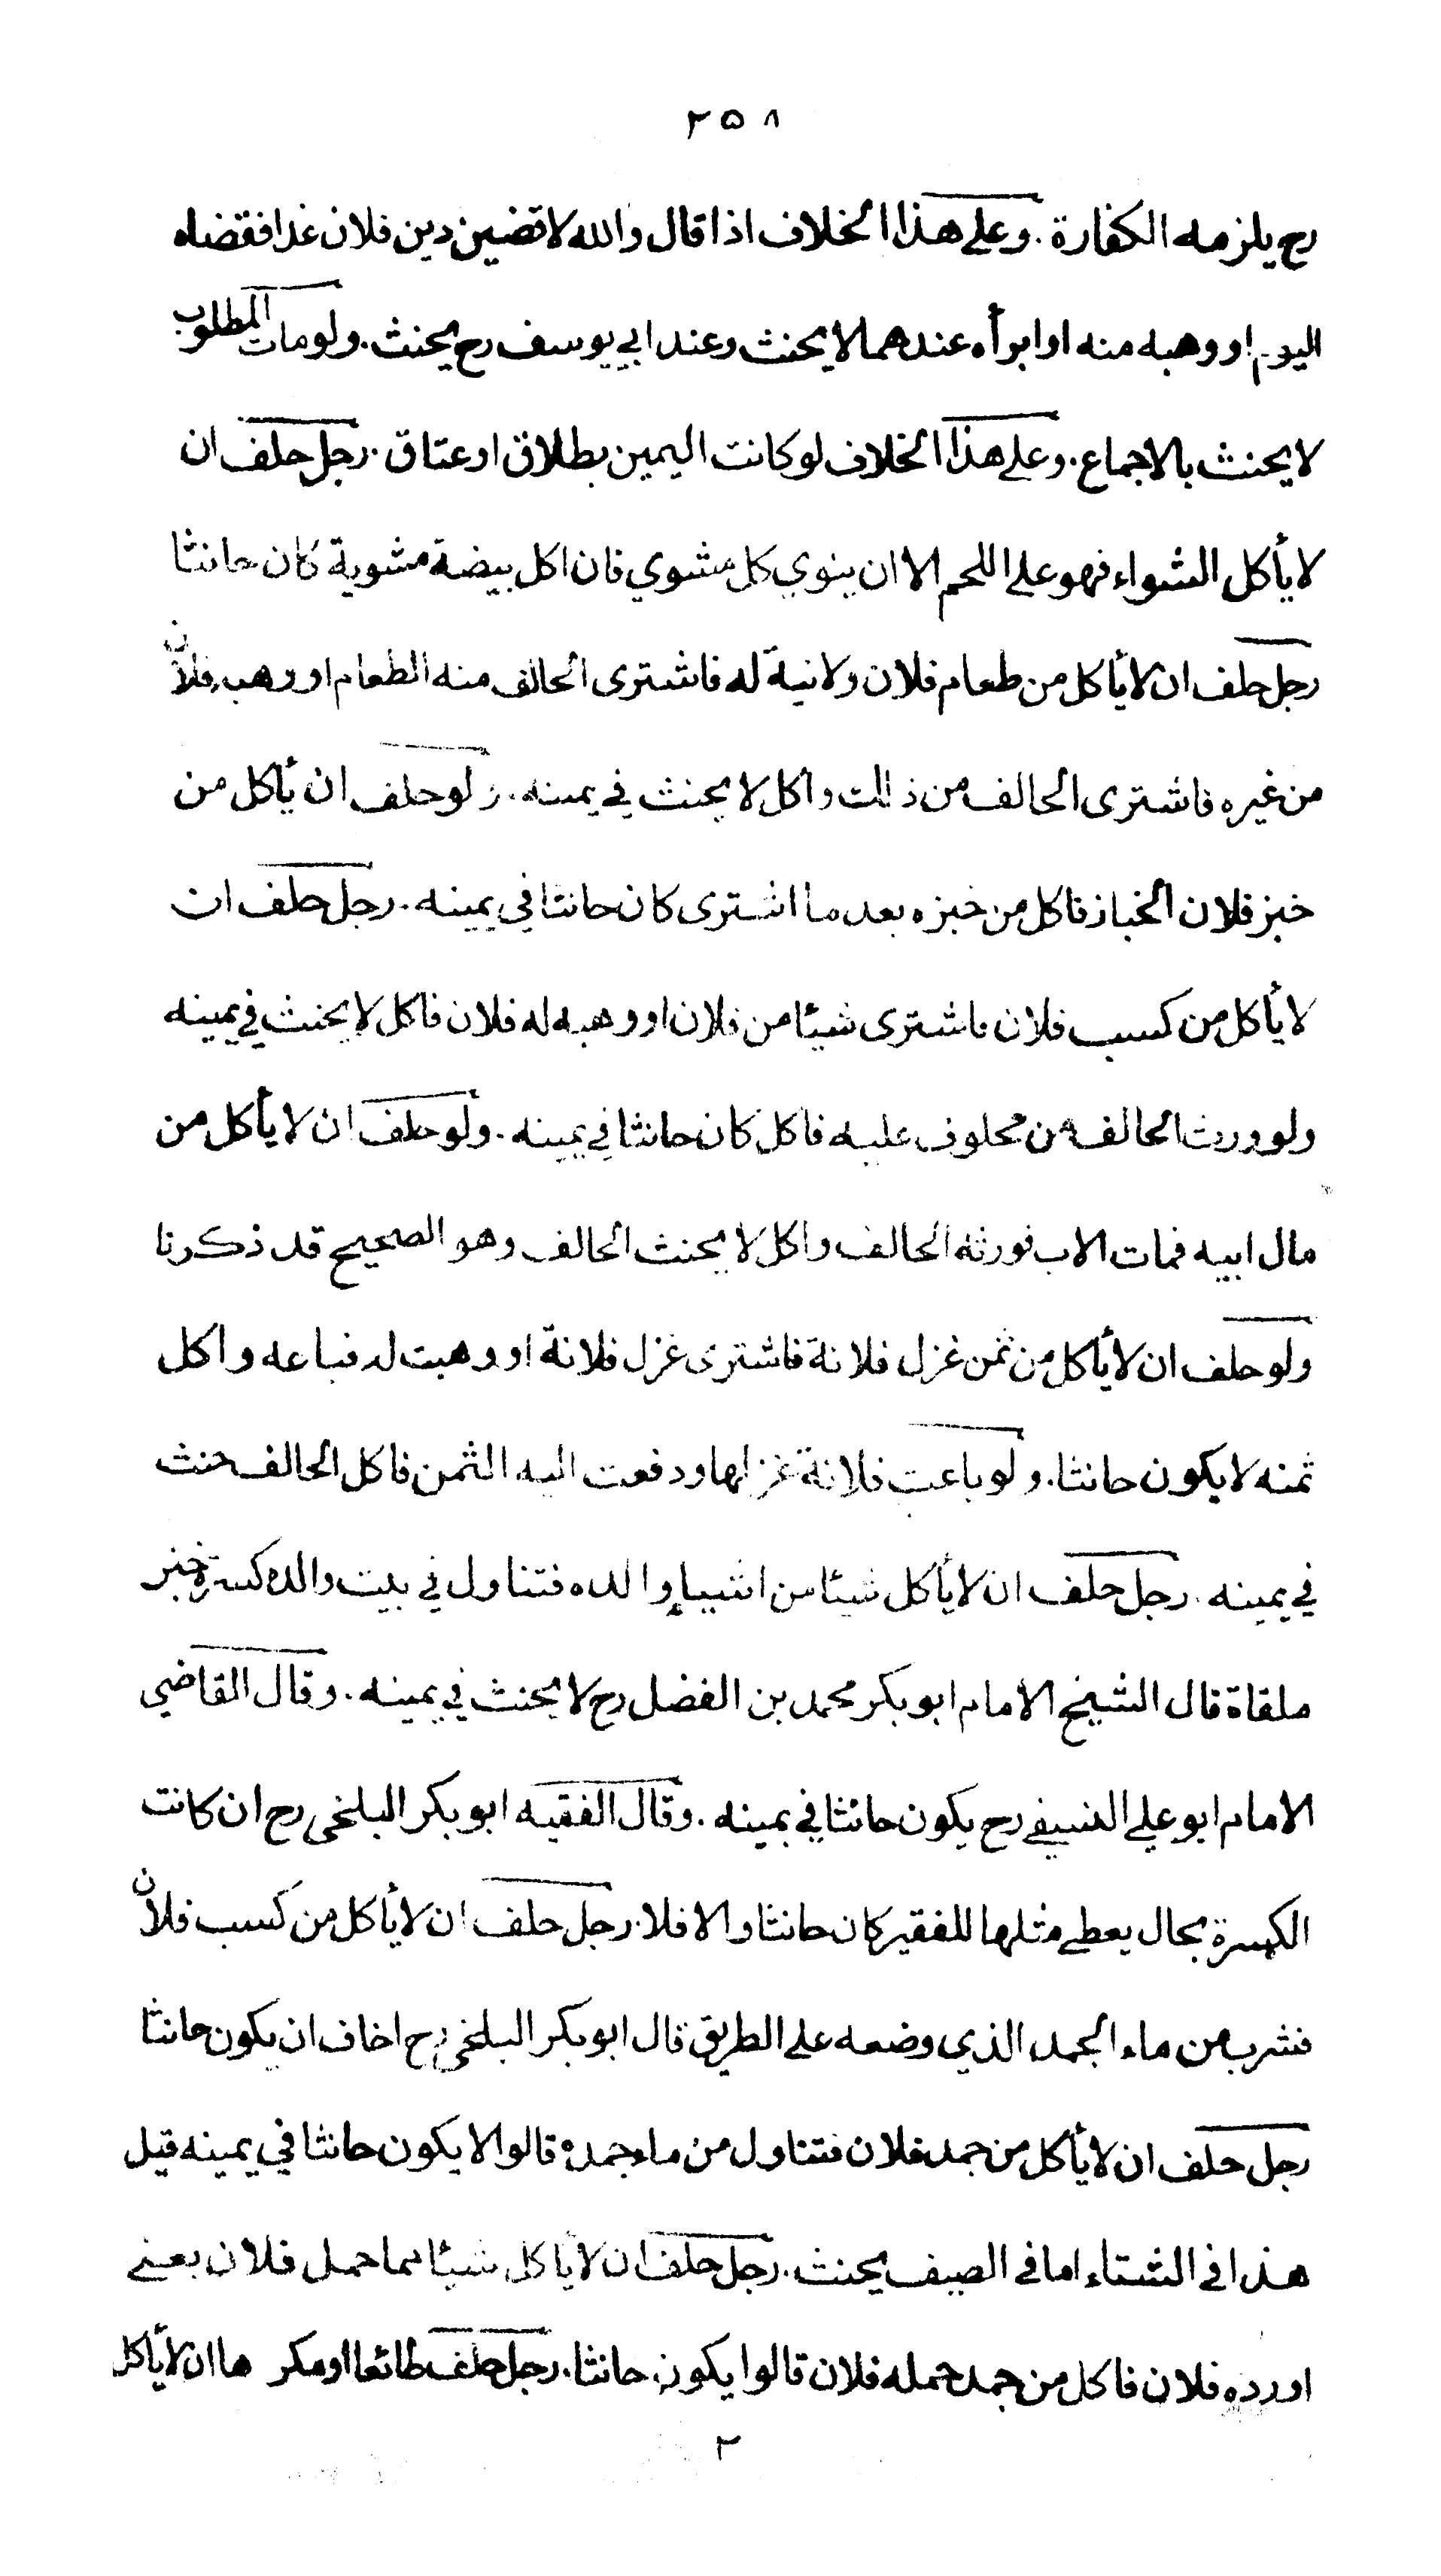 ٢٥٨
رح يلزمه الكفارة . وعلى هذا الخلاف اذا قال والله لاقضين دين فلان غدا فقضاه
اليوم او وهبه منه او ابرأه عندهما لا يحنث وعند ابي يوسف رح يحنث . ولو مات المطلوب
لا يحنث بالاجماع . وعلى هذا الخلاف لو كانت اليمين بطلاق او عتاق . رجل حلف ان
لا يأكل الشواء فهو على اللحم الا ان ينوي كل مشوي فان اكل بيضة مشوية كان حانثا
رجل حلف ان لا يأكل من طعام فلان ولا نية له فاشترى الحالف منه الطعام او وهب فلان
من غيره فاشترى الحالف من ذلك واكل لا يحنث في يمينه . ولو حلف ان يأكل من
خبز فلان الخباز فاكل من خبزه بعد ما اشترى كان حانثا في يمينه . رجل حلف ان
لا يأكل من كسب فلان فاشترى شيئا من فلان او وهبه له فلان فاكل لا يحنث في يمينه
ولو ورث الحالف من محلوف عليه فاكل كان حانثا في يمينه . ولو حلف ان لا يأكل من
مال ابيه فمات الاب فورثه الحالف واكل لا يحنث الحالف وهو الصحيح قد ذكرنا
ولو حلف ان لا يأكل من ثمن غزل فلانة فاشترى غزل فلانة او وهبت له فباعه واكل
ثمنه لا يكون حانثا . ولو باعت فلانة غزلها ودفعت اليه الثمن فاكل الحالف حنث
في يمينه . رجل حلف ان لا يأكل شيئا من اشياء والده فتناول في بيت والده كسرة خبز
ملقاة قال الشيخ الامام ابو بكر محمد بن الفضل رح لا يحنث في يمينه . وقال القاضي
الامام ابو علي النسفي رح يكون حانثا في يمينه . وقال الفقيه ابو بكر البلخي رح ان كانت
الكسرة بحال يعطى مثلها للفقير كان حانثا والا فلا . رجل حلف ان لا يأكل من كسب فلان
فشرب من ماء الجمد الذي وضعه على الطريق قال ابو بكر البلخي رح اخاف ان يكون حانثا
رجل حلف ان لا يأكل من جمد فلان فتناول من ماء جمده قالوا لا يكون حانثا في يمينه قيل
هذا في الشتاء اما في الصيف يحنث . رجل حلف ان لا يأكل شيئا مما حمل فلان يعني
اورده فلان فاكل من جمد حمله فلان قالوا يكون حانثا . رجل حلف طائعا او مكرها ان لا يأكل
٢